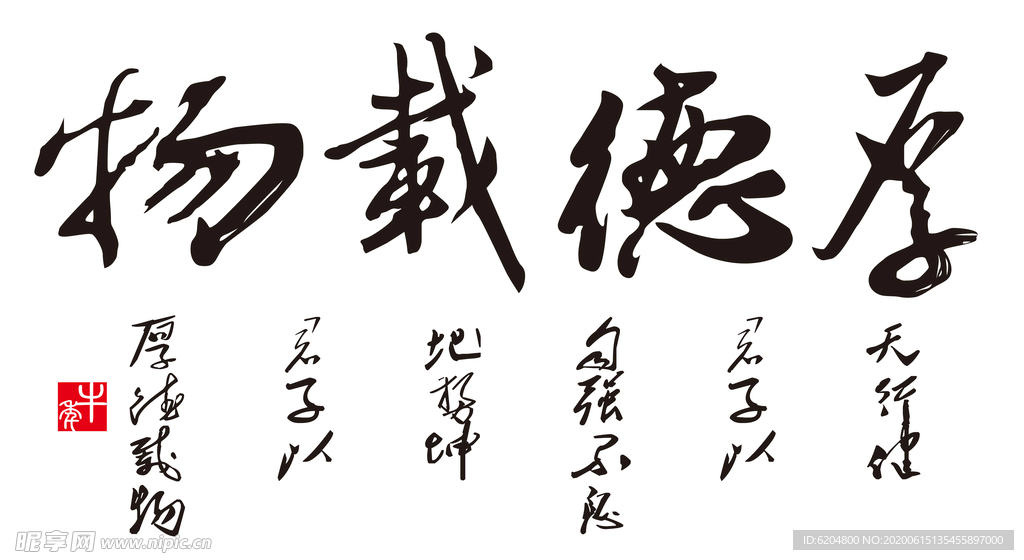 厚德载物
天行健
君子以
自强不息
地势坤
君子以
厚德载物
牛年
昵享网 www.nipic.cn
ID:6204800 NO:20200615135455897000